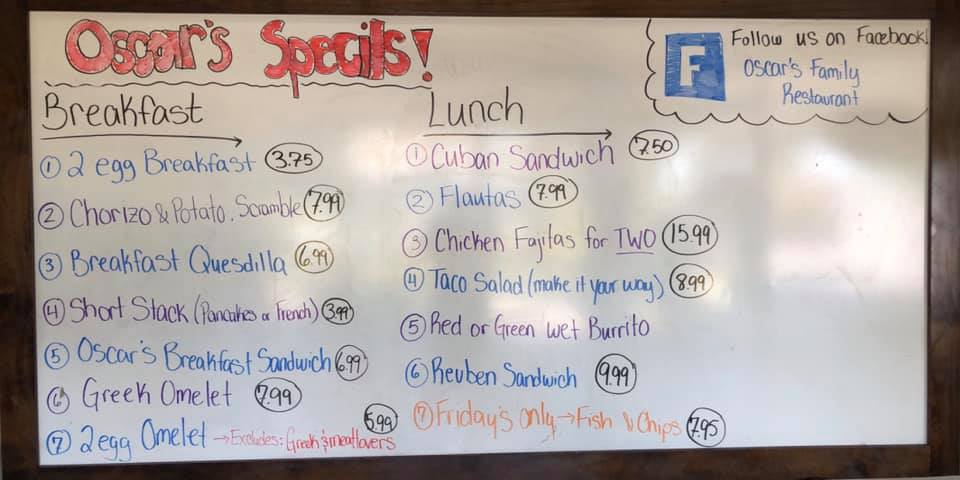 Oscar's Specils!
F
Follow us on Facebook!
Oscar's Family
Restaurant
Breakfast
① 2 egg Breakfast 3.75
② Chorizo & Potato. Scramble 7.99
③ Breakfast Quesdilla 6.99
④ Short Stack (Pancakes or French) 3.99
⑤ Oscar's Breakfast Sandwich 6.99
⑥ Greek Omelet 7.99
⑦ 2 egg Omelet → Excludes: Greek & meatlovers 5.99
Lunch
① Cuban Sandwich 7.50
② Flautas 7.99
③ Chicken Fajitas for TWO 15.99
④ Taco Salad (make it your way) 8.99
⑤ Red or Green wet Burrito
⑥ Reuben Sandwich 9.99
⑦ Friday's only → Fish & Chips 7.95